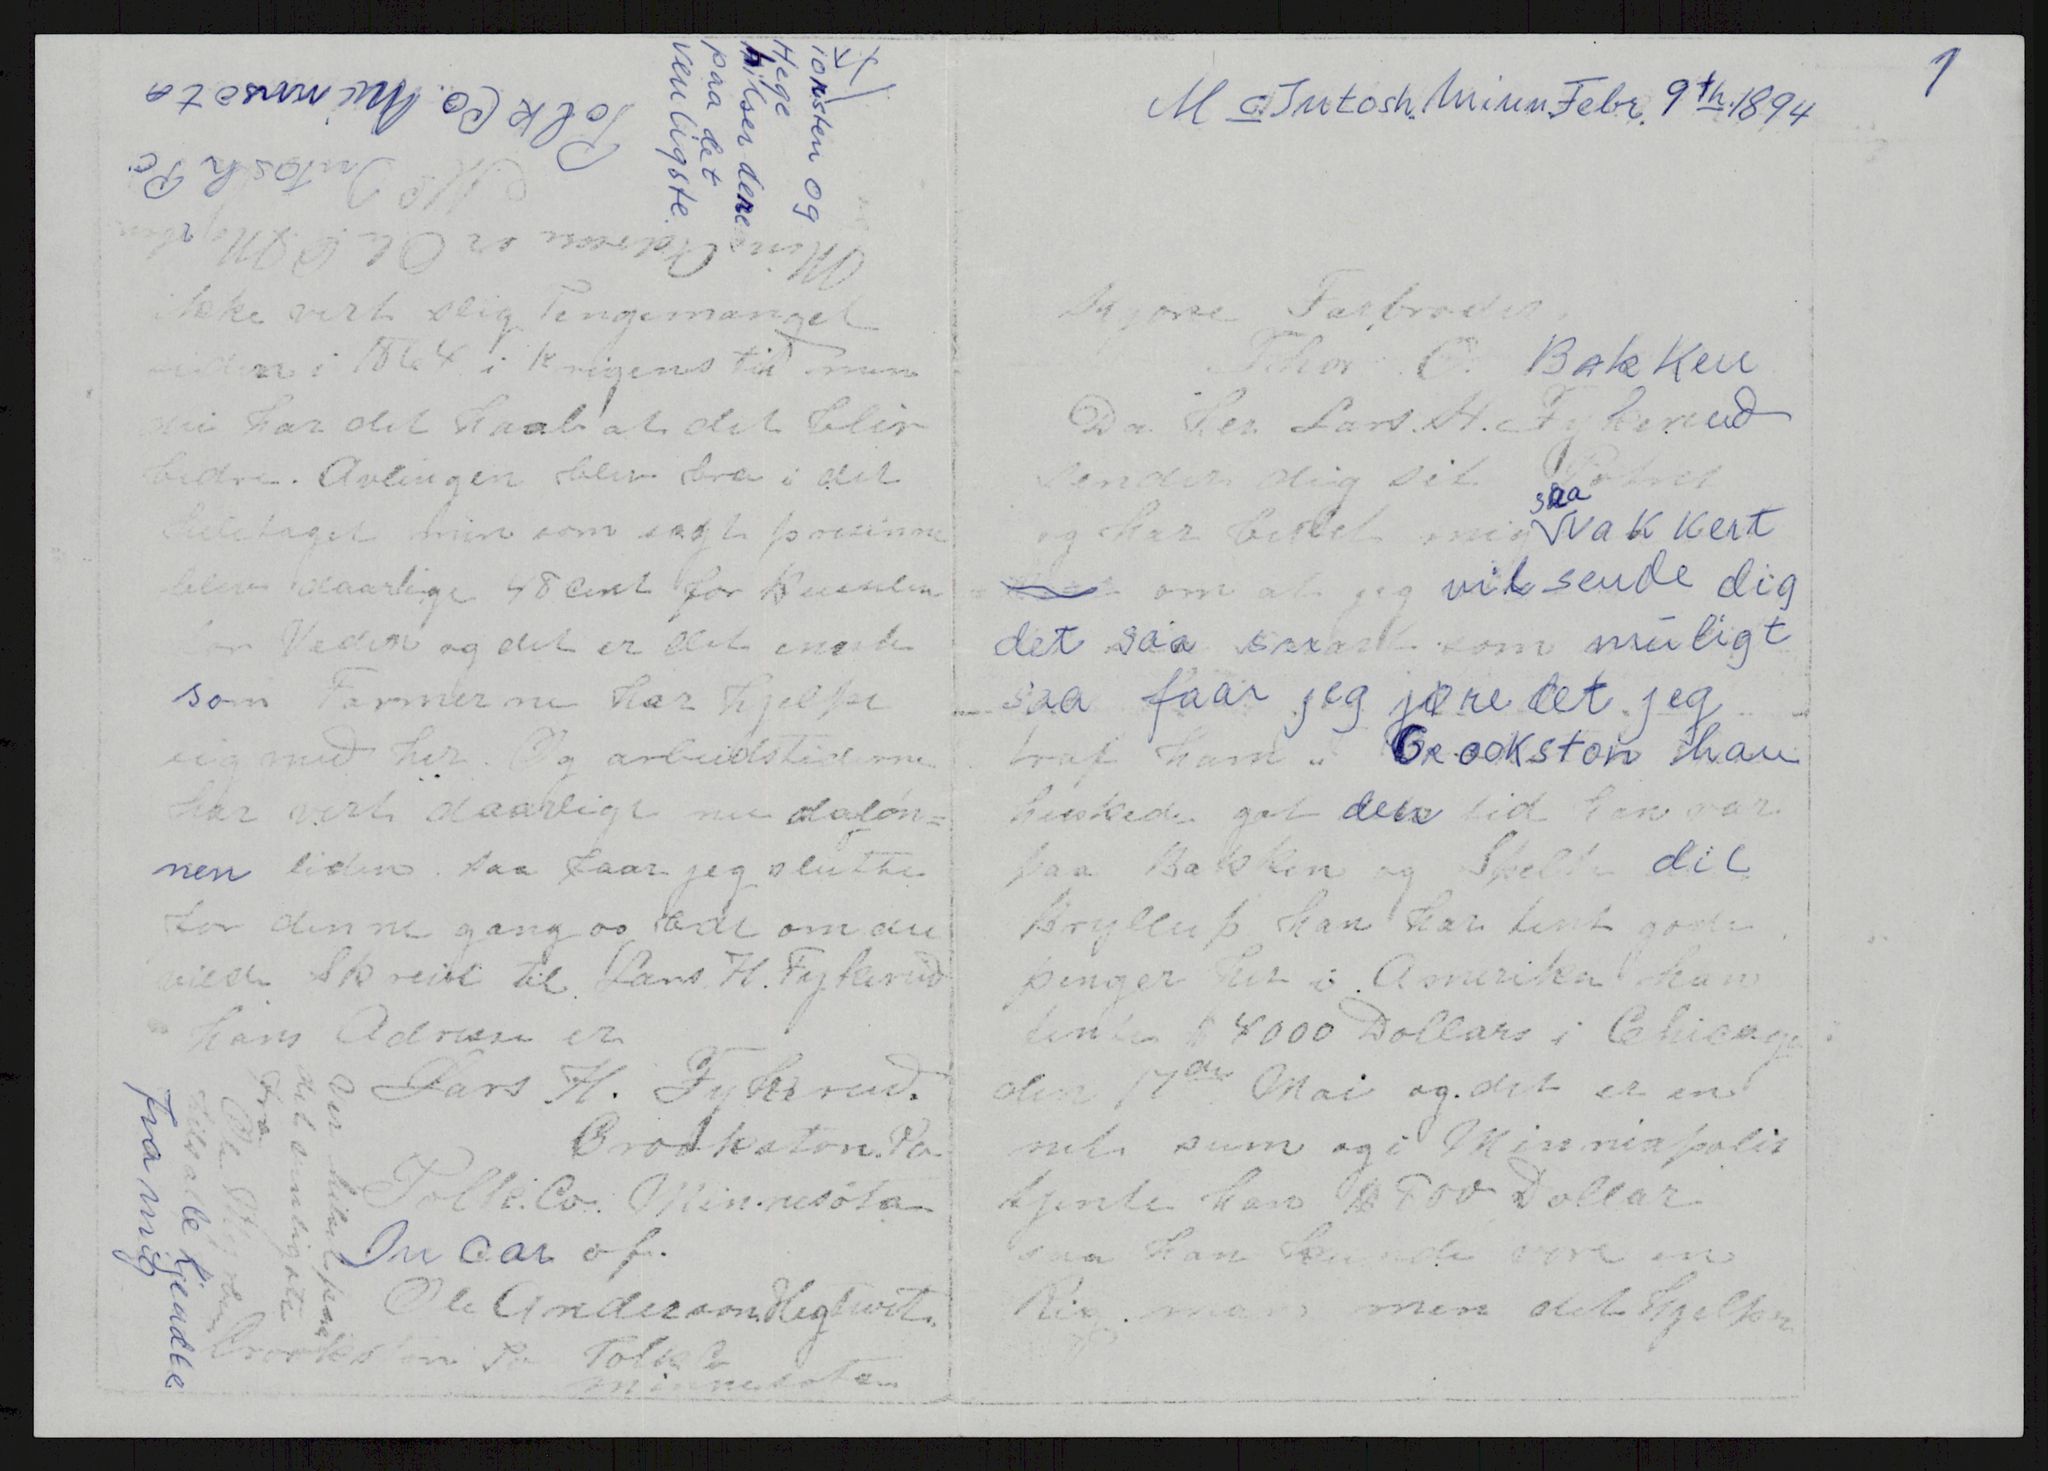 1
Mc Intosh. Minn. Febr. 9th 1894
Kjære Farbroder.
Thor O. Bakken
Da her Lars. H. Fykerud
sender dig sit Potret
og har bedet mig saa vakkert
om at jeg vil sende dig
det saa snart som muligt
saa faar jeg jøre det jeg
traf ham i Crookston han
huskede got den tid han var
paa Bakken og Spelte dit
Bryllup han har tent gode
penger her i Amerika han
tente $ 4000 Dollars i Chicago
den 17de Mai og det er en
net sum og i Minniapolis
tjente han $ 500 Dollar
saa han kunde være en
Rig man men det hjelper
ikke vert slig Pengemangel
siden i 1864 i krigens tid men
nu har det haab at det blir
bedre. Avlingen blev bra i det
heletaget men som sagt priserne
blev daarlige 48 cent for Busselen
for Veden og det er det eneste
som Farmerne har hjelpe
sig med her. Og arbeidstiderne
har vert daarlige nu daløn=
nen liden. saa faar jeg slutte
for denne gang os bede om du
vilde Skreive til Lars. H. Fykerud
hans Adresse er
Lars H. Fykerud.
Crookston. Po
Polk. Co. Minnesota
In car of.
Ole Anderson Hegtveit.
Crookston Po Polk Co
Minnesota
Der hilses paa
det venligste
Fra
Ole
Hils alle kjendte
fra mig
Min Adresse er Ole
Mc Intosh Po
Polk Co. Minnesota
x) Torsten og
Hege
hilser deres
paa det
venligste.